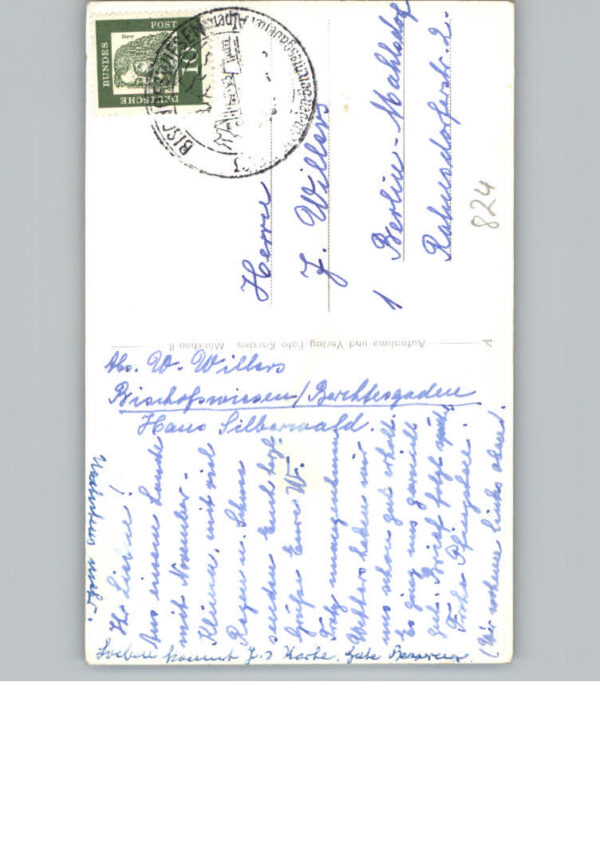 DEUTSCHE
BUNDES
POST
Dürer
10
Herrn
J. Willers
1 Berlin-Mahlsdorf
Rahnsdorferstr. 2.
824
A Aufnahme und Verlag Foto Kersten München 8
Abs. W. Willers
Bischofswiesen/Berchtesgaden
Haus Silberwald.
Ihr Lieben!
Aus einem Lande
mit November-
Klima, mit viel
Regen u.
senden Euch herzl.
Grüße Eure W.
Trotz unangenehmen
Wetters haben wir
uns schon gut erholt.
Es ging uns garnicht
gut. Brief folgt später.
Frohe Pfingsten.
(Wir wohnen links oben)
Soeben kommt J.s Karte.